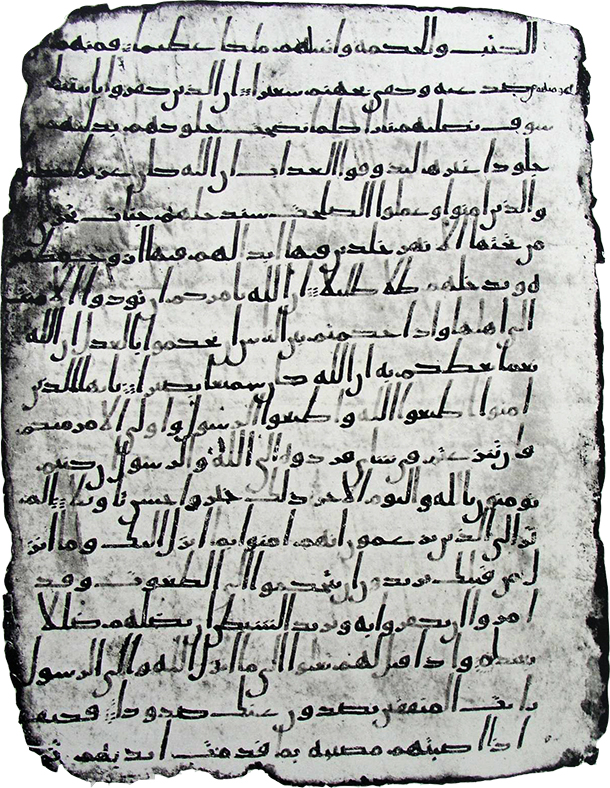 الكتب والحكمه واتينهم ملكا عظيما فمنهم
من صد عنه وكفى بجهنم سعيرا ان الذين كفروا بايتنا
سوف نصليهم نارا كلما نضجت جلودهم بدلنهم
جلودا غيرها ليذوقوا العذاب ان الله كان عزيزا
والذين امنوا وعملوا الصلحت سندخلهم جنات تجري
من تحتها الانهر خلدين فيها ابدا لهم فيها ازوج مطهره
وندخلهم ظلا ظليلا ان الله يامركم ان تودوا الامنت
الى اهلها واذا حكمتم بين الناس ان تحكموا بالعدل ان الله
نعما يعظكم به ان الله كان سميعا بصيرا يايها الذين
امنوا اطيعوا الله واطيعوا الرسول واولي الامر منكم
فان تنزعتم في شاي فردوه الى الله والرسول ان كنتم
تومنون بالله واليوم الاخر ذلك خير واحسن تاويلا الم
تر الى الذين يزعمون انهم امنوا بما انزل اليك وما انز
ل من قبلك يريدون ان يتحكموا الى الطغوت وقد
امروا ان يكفروا به ويريد الشيطن ان يضلهم ضللا
بعيدا واذا قيل لهم تعلوا الى ما انزل الله والى الرسول
رايت المنفقين يصدون عنك صدودا فكيف
اذا اصبتهم مصيبه بما قدمت ايديهم ثم